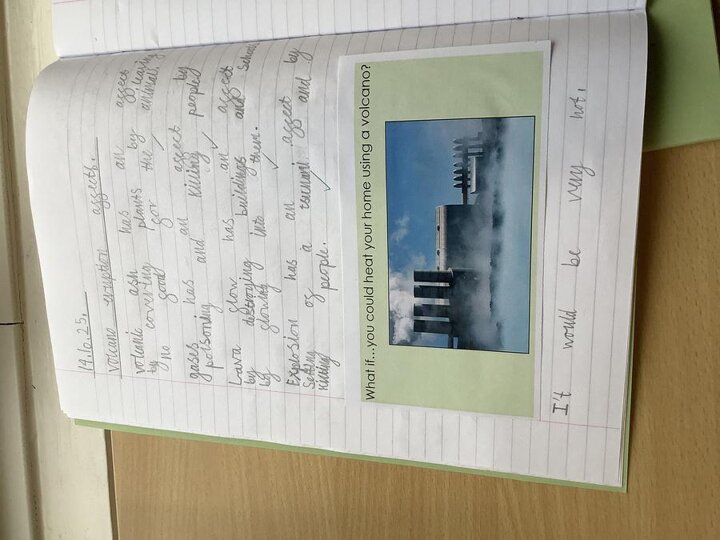 14.10.25.
volcano eruption affects.
volcanic ash has an affect
by covering plants by leaving
no good for the animals
gases has an affect by
poisoning and killing people
Lava flow has an affect
by destroying buildings and schools
by flowing into them.
Explosion has an affect by
setting of a tsunami and
killing people.
What if...you could heat your home using a volcano?
It would be very hot.